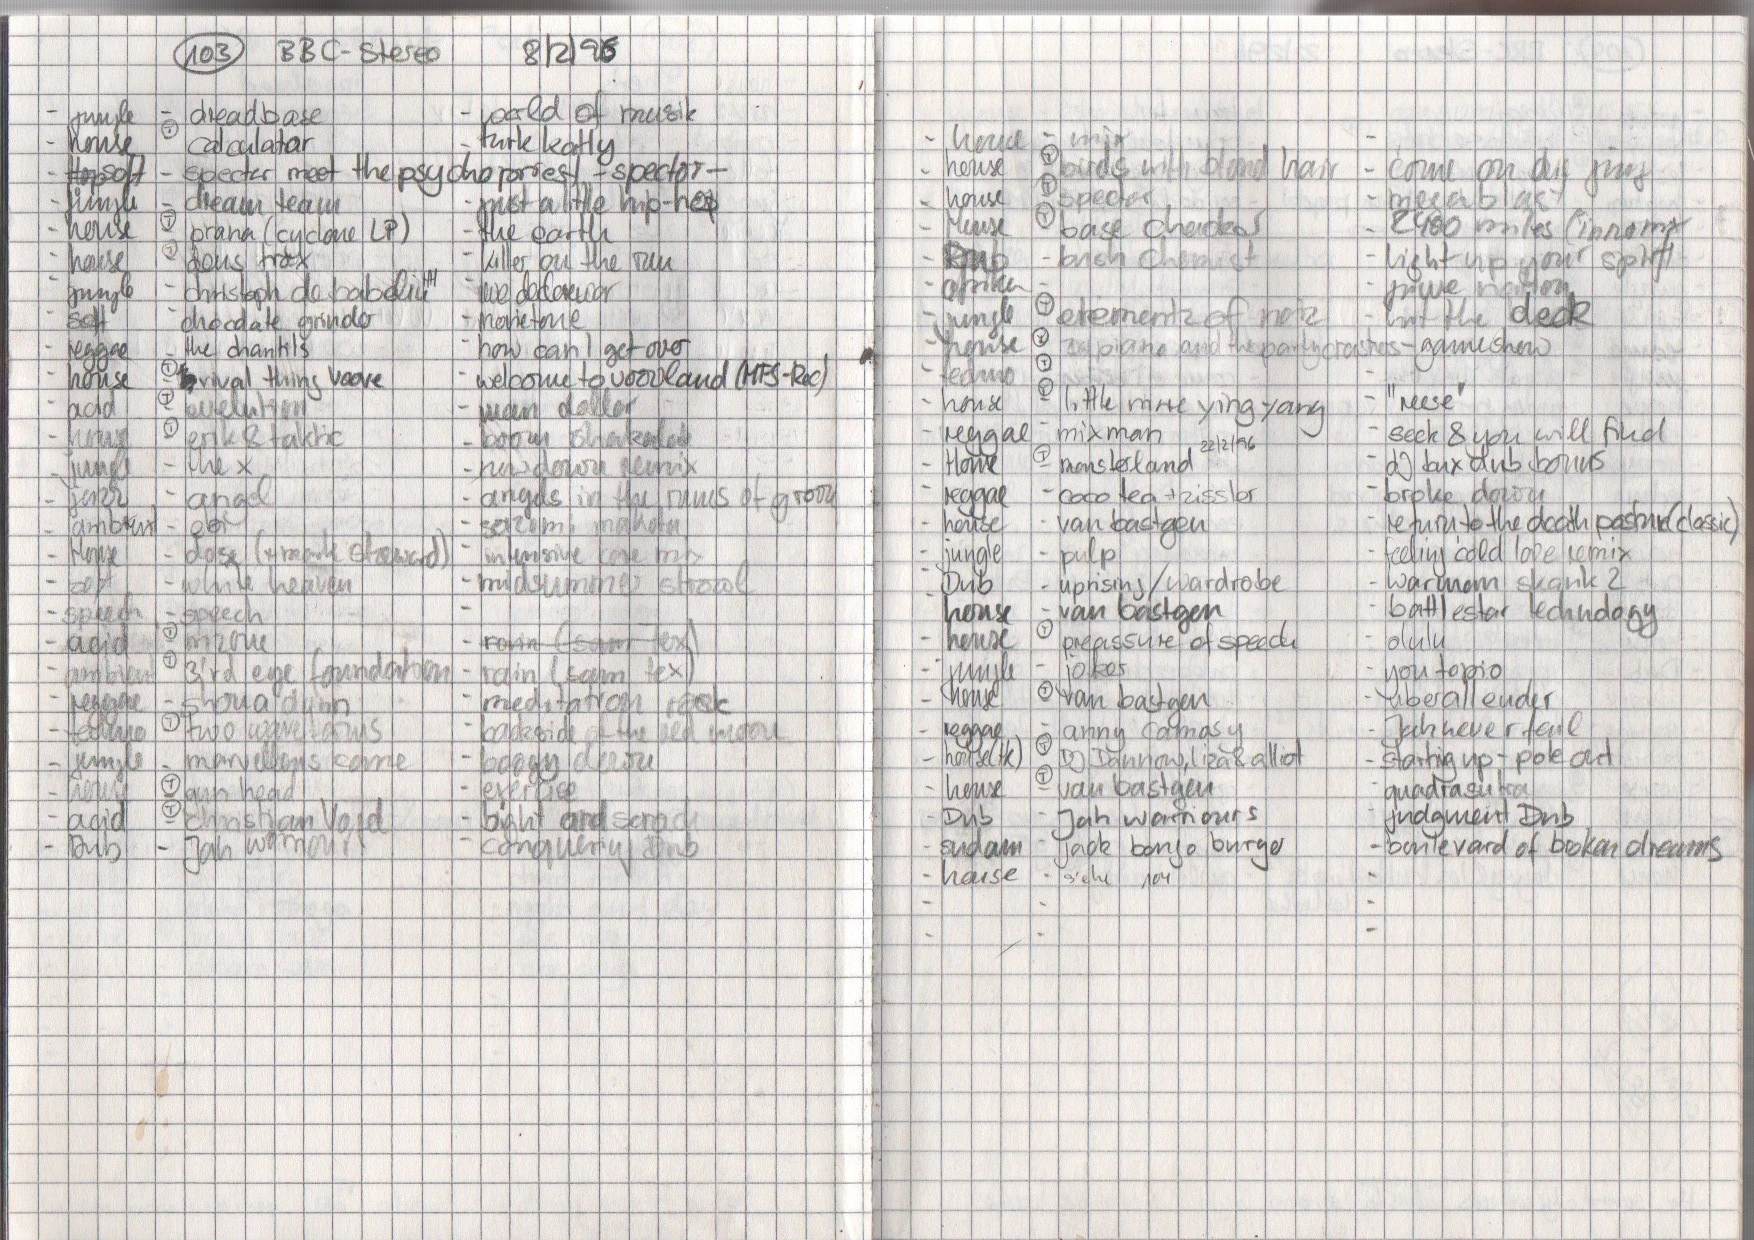 103 BBC-Stereo 8/2/96
- jungle - dreadbase - world of musik
- house Ⓣ calculatar - turk katly
- soft - specter meet the psychoporiest - spector -
- jungle - dream team - just a little hip-hop
- house Ⓣ prana (cyclone LP) - the earth
- house Ⓣ trax - killer on the run
- jungle - christoph de babelin
- soft chocolate grinder - monotone
- reggae - the chantils - how can I get over
- house Ⓣ rival thing voove - welcome to voovland (MFS-Rec)
- acid Ⓣ evolution - main dollar
- house Ⓣ erik & taktic - boom shakalak
- jungle - the x - new dawn remix
- jazz - angel - angels in the ruins of
- ambient
- House - dose (+ mark steward) - intensive care mix
- soft - white heaven - midsummer strool
- speech - speech -
- acid Ⓣ mzone - rain (sam tex)
- ambient Ⓣ 3'rd eye foundation - rain (sam tex)
- reggae - shoua dunn - meditation rock
- techno Ⓣ two waveforms - backside of the red moon
- jungle - marvellous came - boogy down
- house Ⓣ gun head - exercise
- acid Ⓣ christian Vogel - bight and scrach
- Dub - Jah warriours - conquering Dub
- house - mix -
- house Ⓣ birds with blond hair - come on
- house Ⓣ spector - megablast
- House Ⓣ base - 2400 miles
- bush chemist - light up your spliff
- - nation
- jungle Ⓣ elementz of noiz - hit the deck
- house Ⓣ piano and the partycrashers - gameshow
- techno Ⓣ
- house Ⓣ little mrre ying yang - "reese"
- reggae - mixman 22/2/96 - seek & you will find
- House Ⓣ monsterland - dj tux dub bonus
- reggae - coco tea + rissler - broke down
- house - van bastgen - return to the death (classic)
- jungle - pulp - feeling cold love remix
- Dub - uprising/wardrobe - warman skank 2
- house - van bastgen - battlestar technology
- house Ⓣ preassure of speech - olulu
- jungle - joker - youtopio
- house Ⓣ van bastgen - überall ender
- reggae - anny - Jah never feil
- house(tk) Ⓣ DJ Dannow, liza & alliot - startig up - pole art
- house Ⓣ van bastgen - quadrasutra
- Dub - Jah warriours - judgment Dub
- - Jack bongo burger - boulevard of broken dreams
- house - siehe 104 -
- - -
- - -